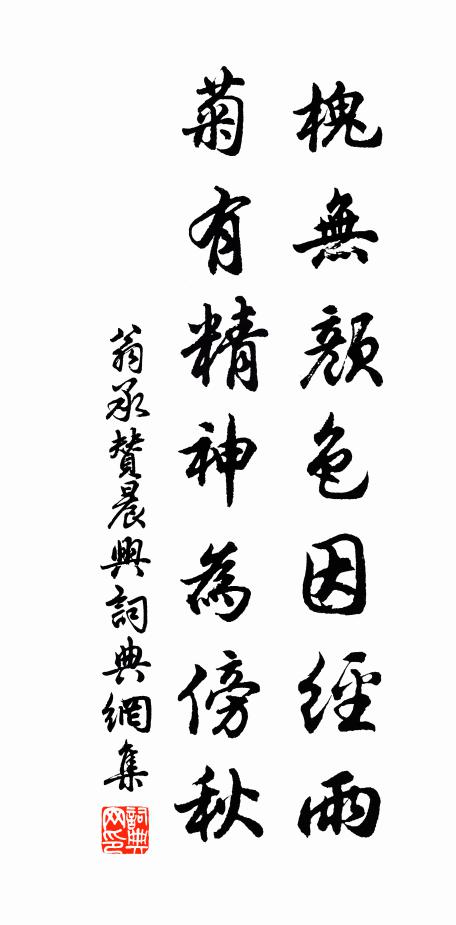 槐無顏色因經雨
菊有精神為傍秋
翁承贊晨興詞典網集
詞典
网印